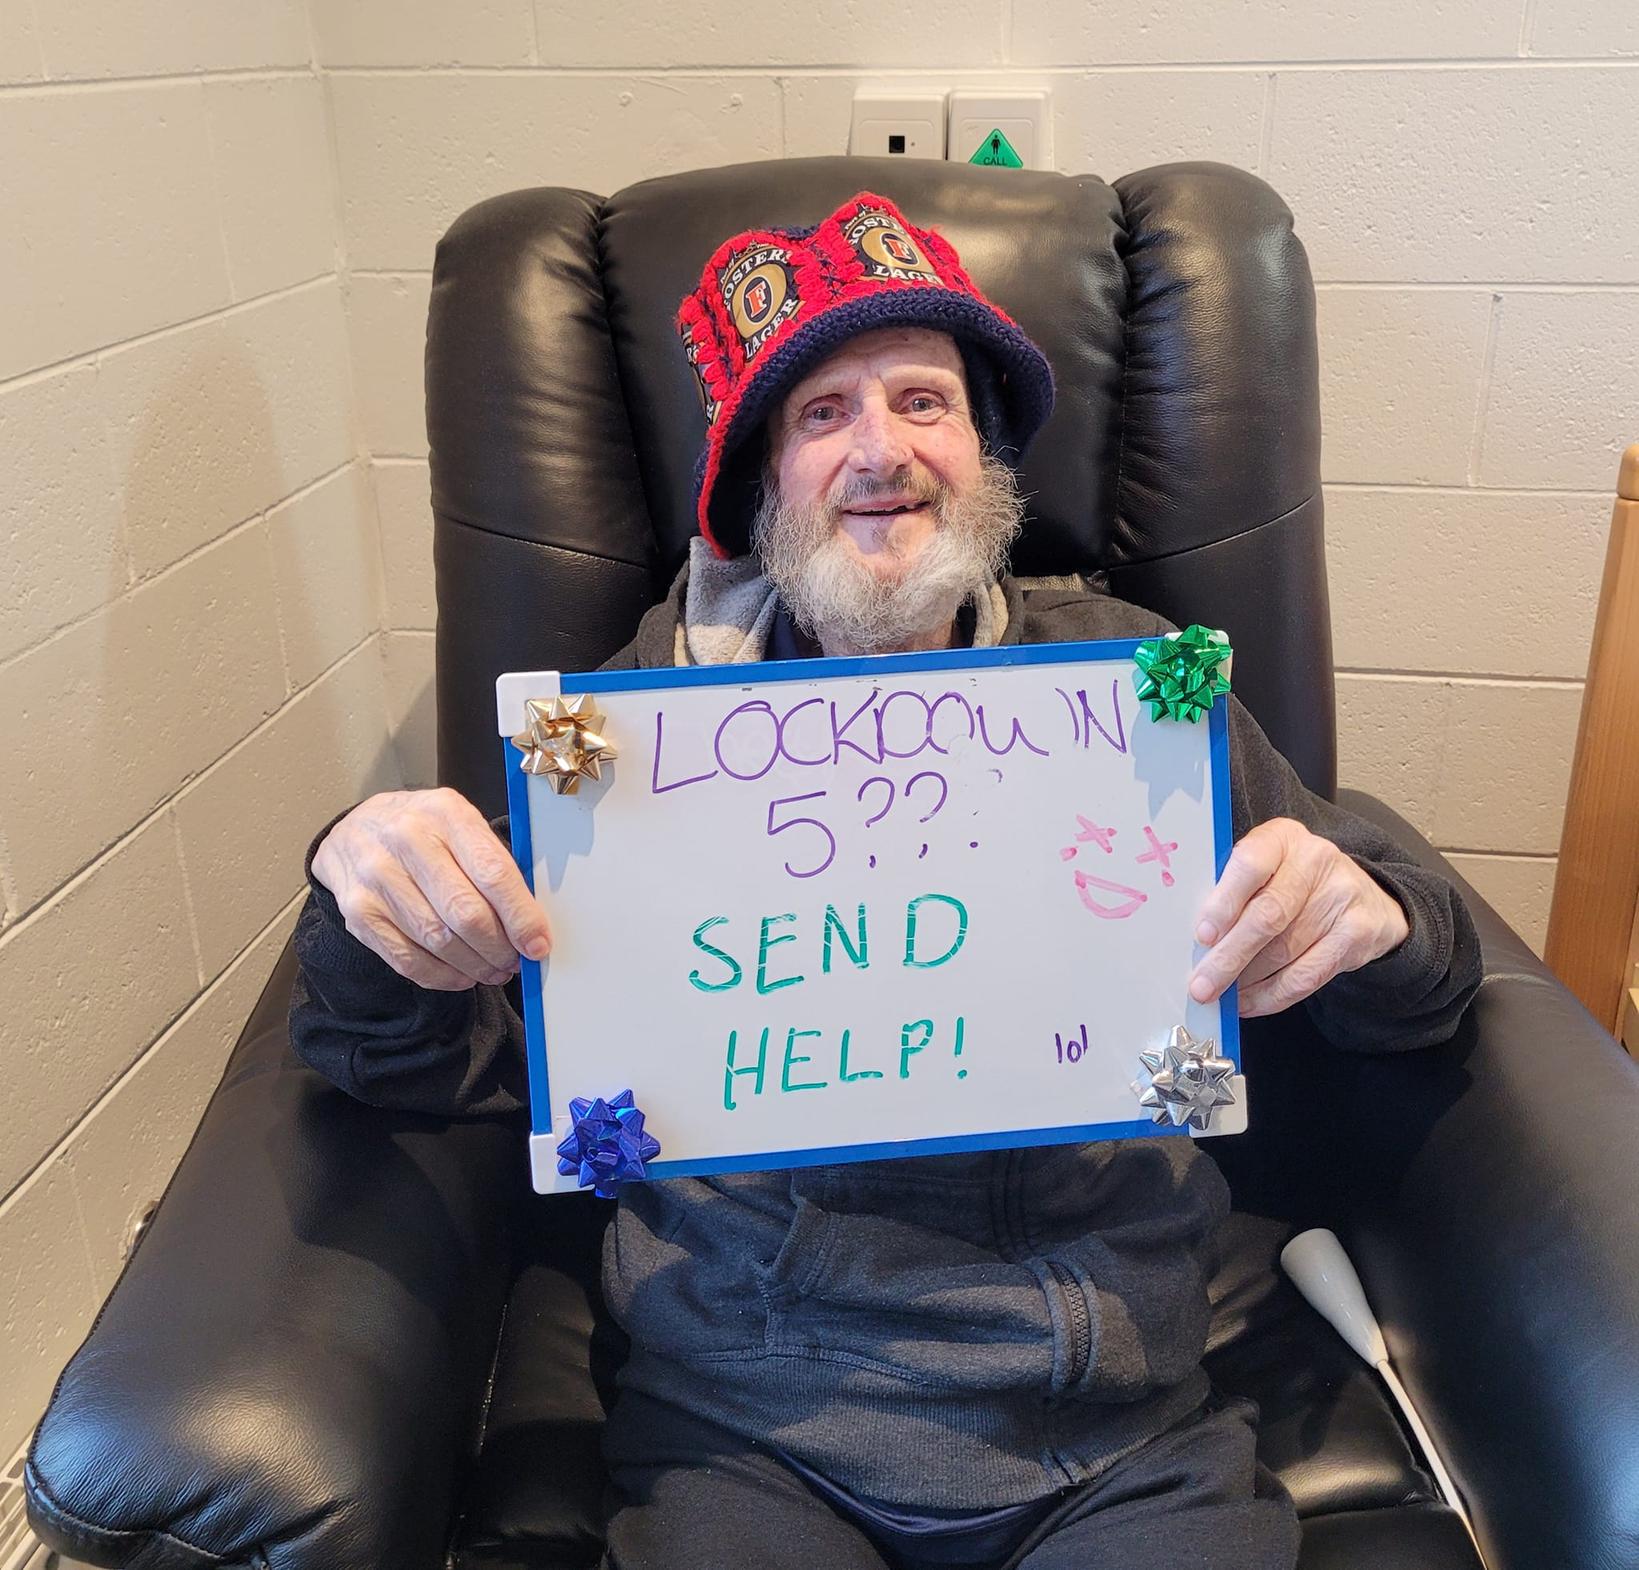 CALL
FOSTER'S
F
LAGER
FOSTER
F
LAGER
LOCKDOWN
5???
SEND
HELP!
lol